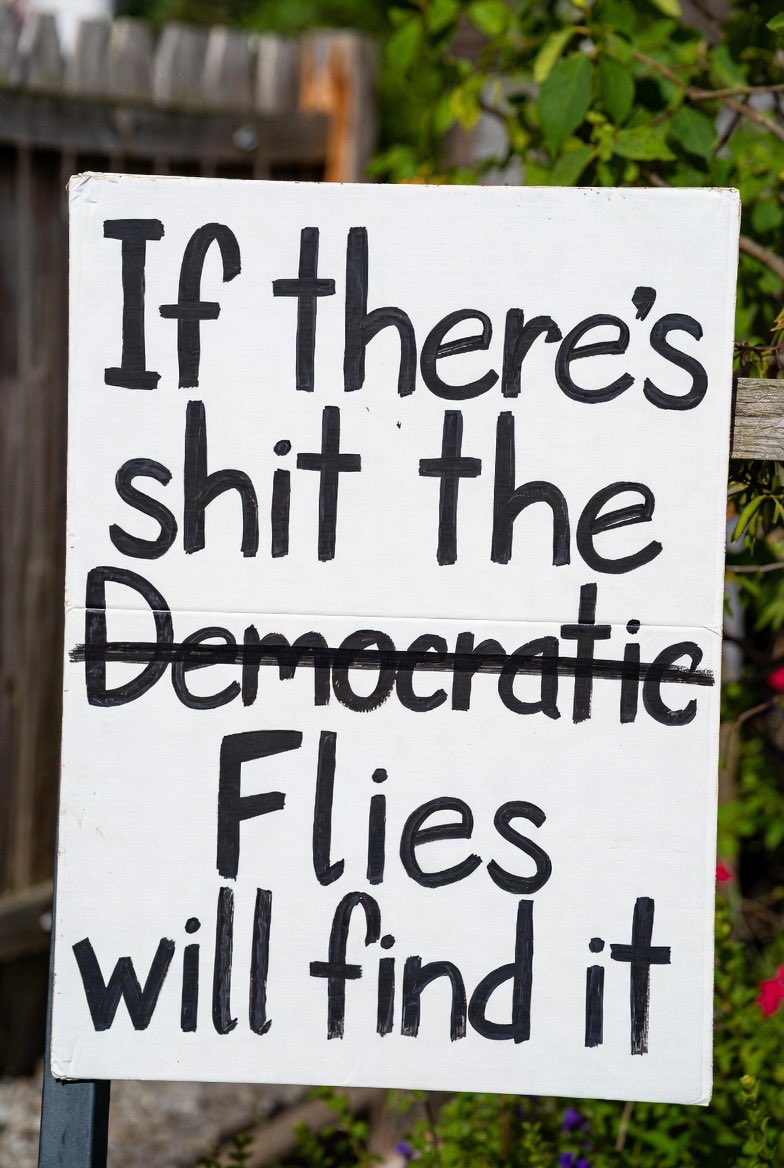 If there's
shit the
Democratic
Flies
will find it